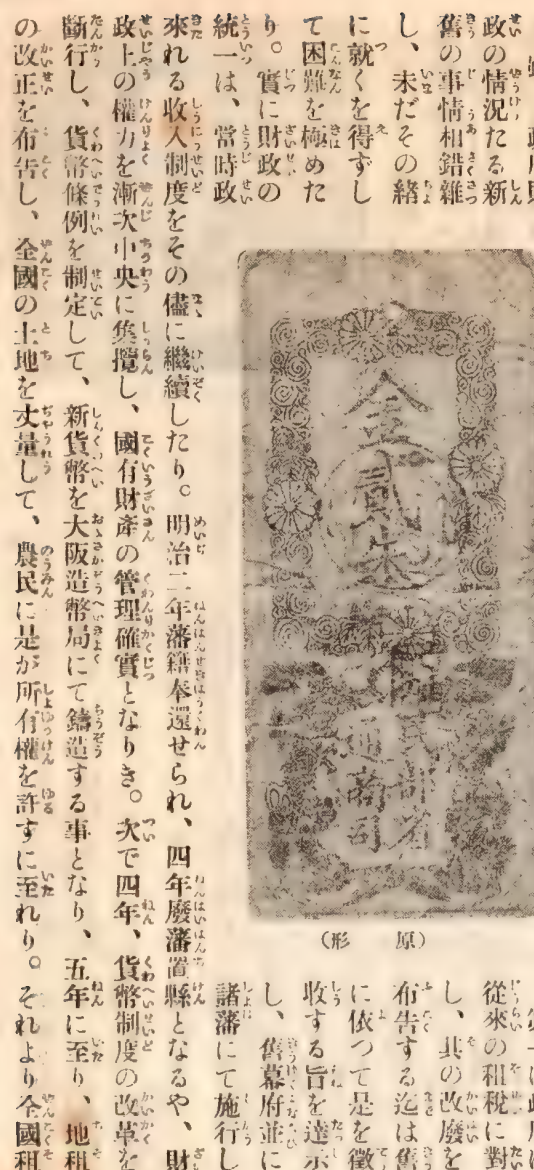 政の情況たる新
舊の事情相錯雜
し、未だその緒
に就くを得ずし
て困難を極めた
り。實に財政の
統一は、當時政
金貳朱
民部省
通商司
（原形）
從來の租稅に對
し、其の改廢を
布告する迄は舊
に依つて是を徵
收する旨を達示
し、舊幕府並に
諸藩にて施行し
來れる收入制度をその儘に繼續したり。明治二年藩籍奉還せられ、四年廢藩置縣となるや、財
政上の權力を漸次中央に集攬し、國有財產の管理確實となりき。次で四年、貨幣制度の改革を
斷行し、貨幣條例を制定して、新貨幣を大阪造幣局にて鑄造する事となり、五年に至り、地租
の改正を布告し、全國の土地を丈量して、農民に是が所有權を許すに至れり。それより全國租